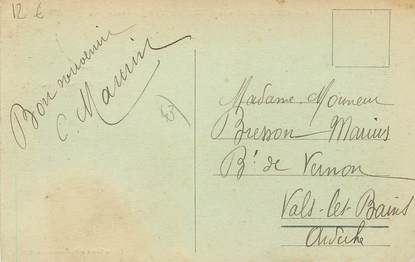 12 €
Bon souvenir
C.
Madame. Monsieur
Bresson Marius
Bd de Vernon
Vals-les-Bains
Ardèche